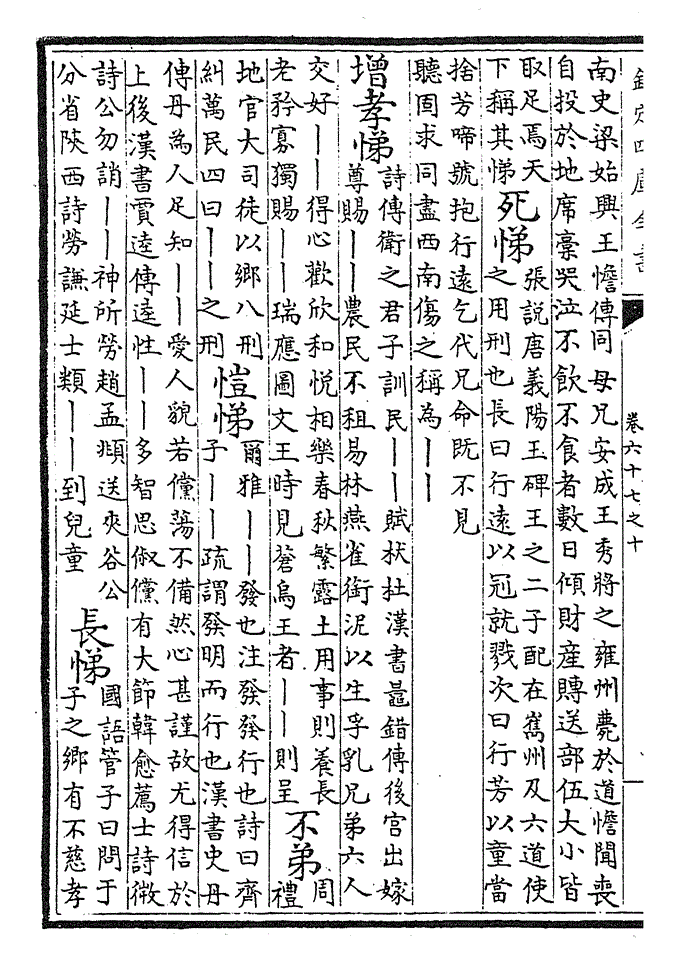 欽定四庫全書
卷六十七之十
南史梁始興王憺傳同母兄安成王秀將之雍州薨於道憺聞喪
自投於地席稾哭泣不飲不食者數日傾財産賻送部伍大小皆
取足焉天
下稱其悌
死悌
張說唐義陽王碑王之二子配在嶲州及六道使
之用刑也長曰行遠以冠就戮次曰行芳以童當
捨芳啼號抱行遠乞代兄命既不見
聽固求同盡西南傷之稱為||
增孝悌
詩傳衛之君子訓民||賦杕杜漢書鼂錯傳後宮出嫁
尊賜||農民不租易林燕雀銜泥以生孚乳兄弟六人
交好||得心歡欣和悅相樂春秋繁露土用事則養長
老矜寡獨賜||瑞應圖文王時見蒼烏王者||則呈
不弟
周
禮
地官大司徒以鄉八刑
糾萬民四曰||之刑
愷悌
爾雅||發也注發發行也詩曰齊
子||疏謂發明而行也漢書史丹
傳丹為人足知||愛人貌若儻蕩不備然心甚謹故尤得信於
上後漢書賈逵傳逵性||多智思俶儻有大節韓愈薦士詩微
詩公勿誚||神所勞趙孟頫送夾谷公
分省陝西詩勞謙延士類||到兒童
長悌
國語管子曰問于
子之鄉有不慈孝